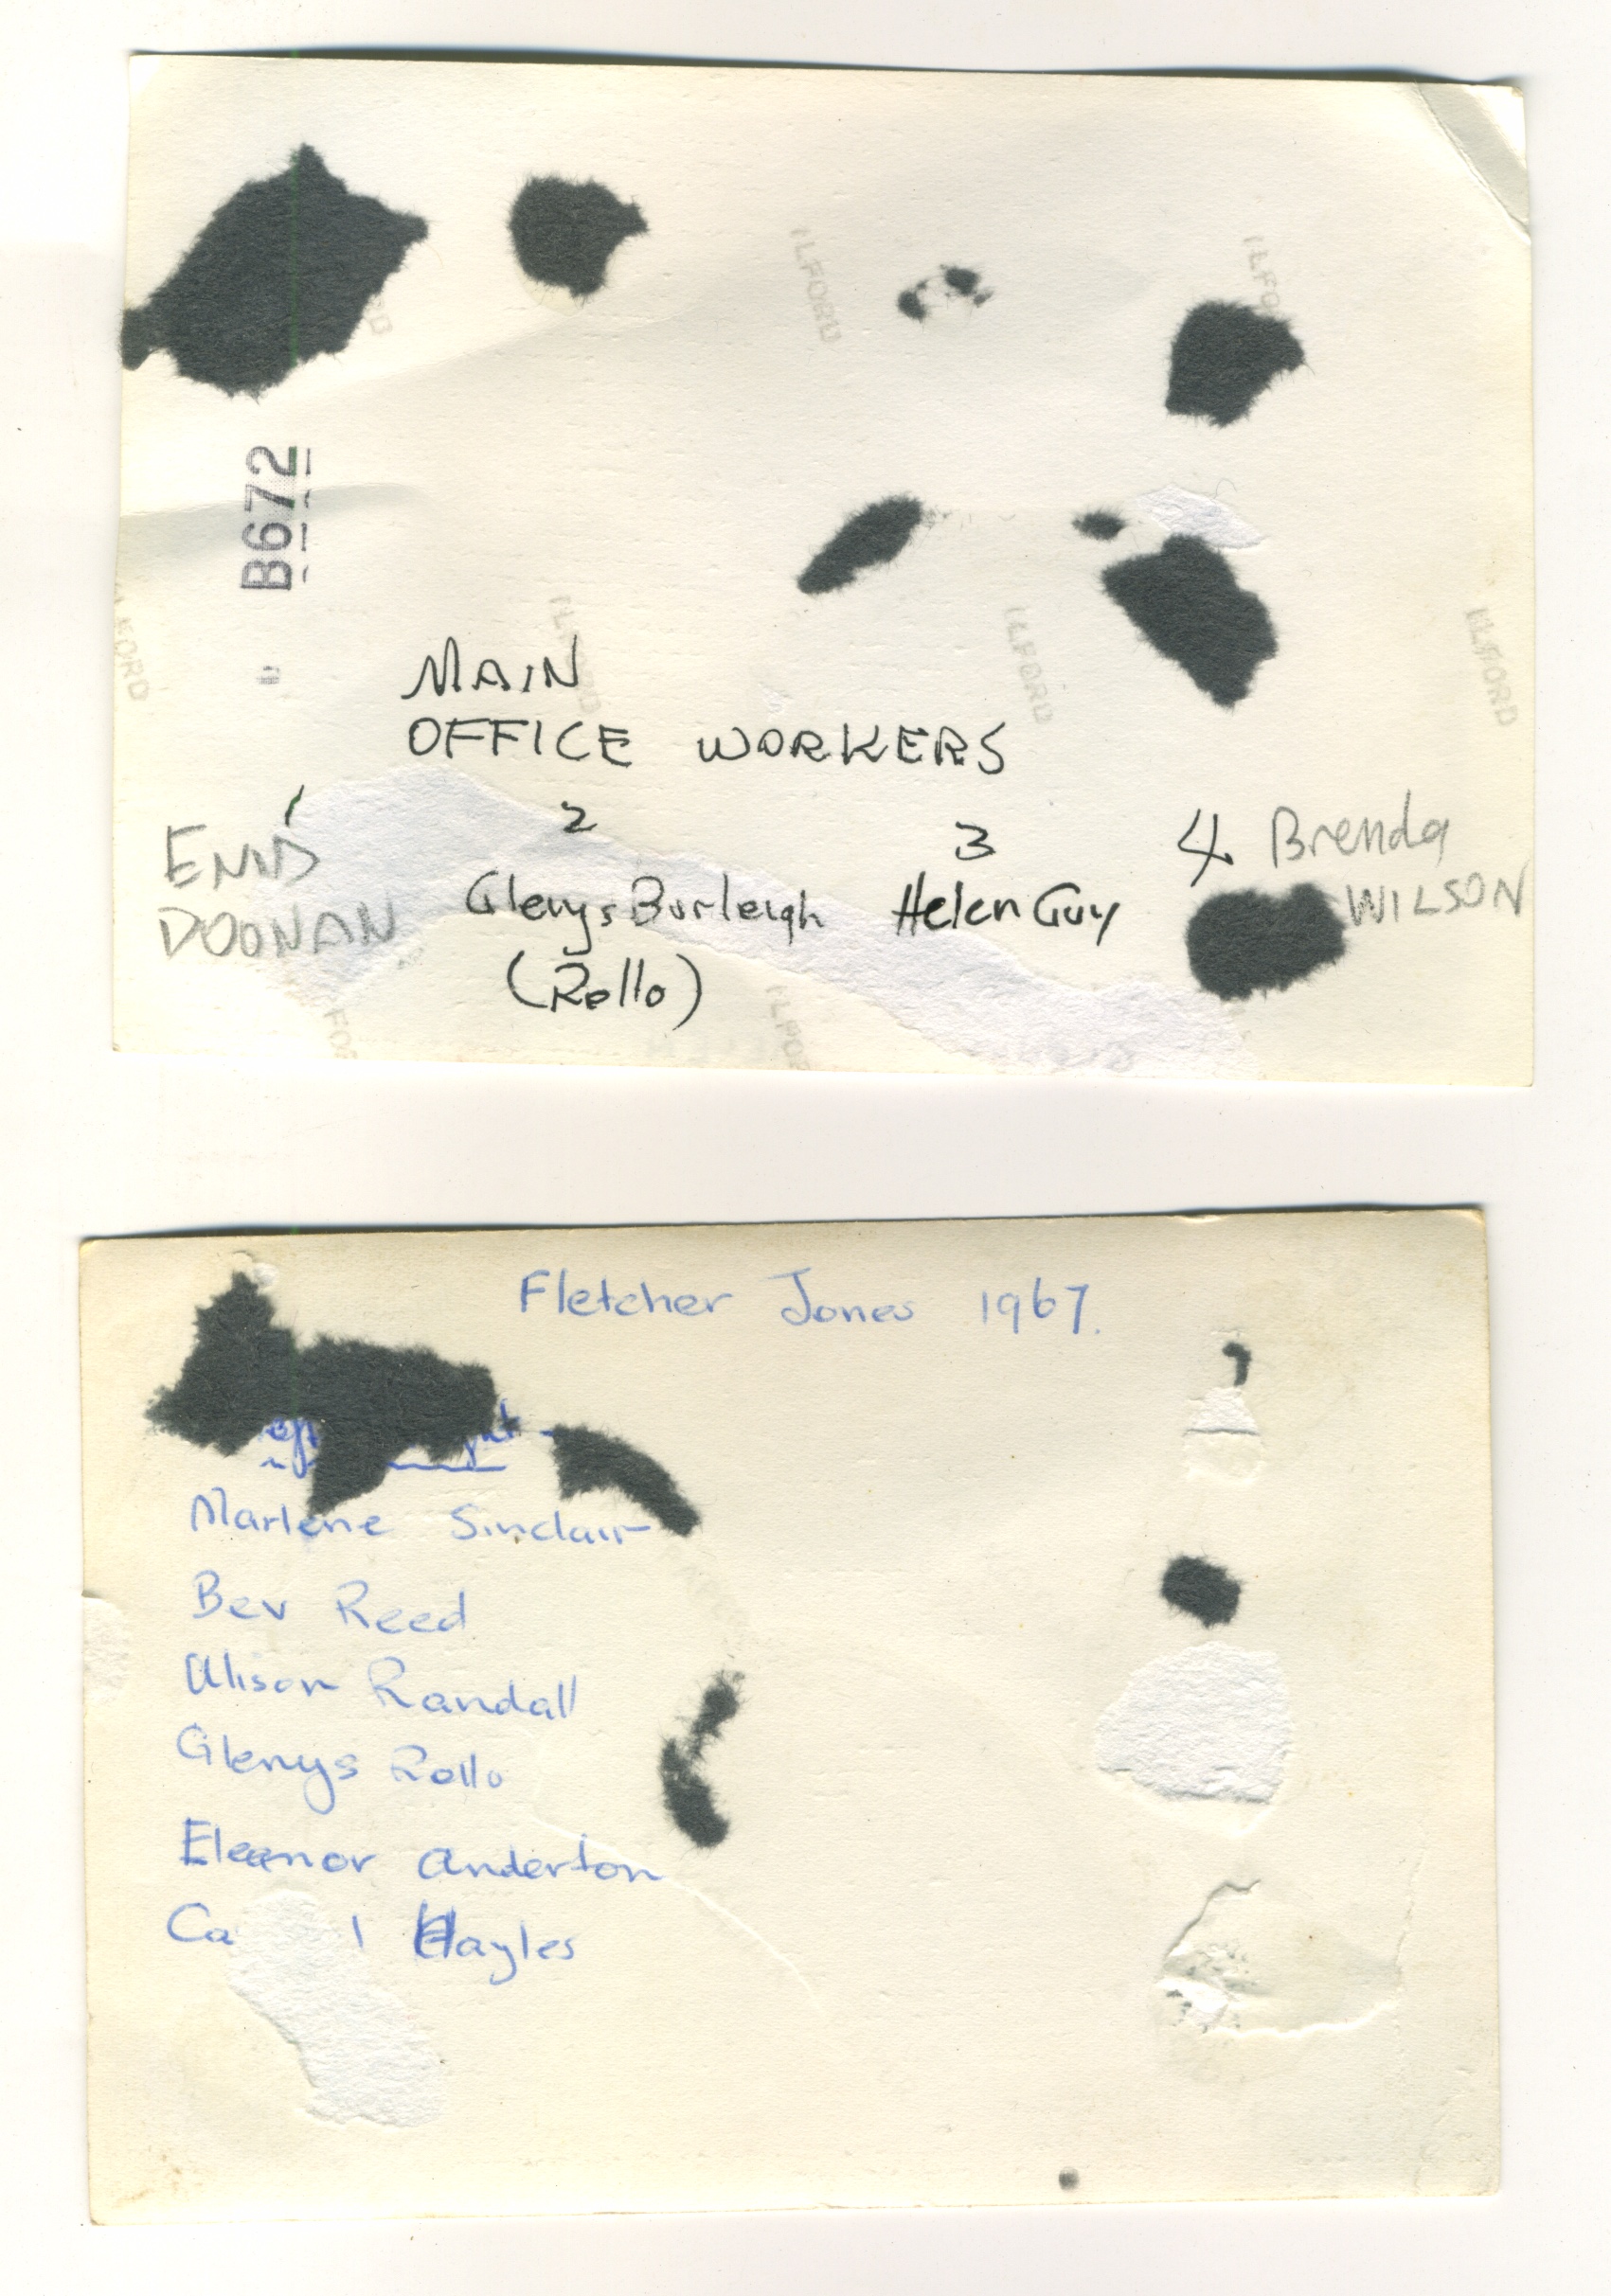 ILFORD
ILFORD
B672
MAIN
OFFICE WORKERS
1 2 3 4 Brenda
ENID Glenys Burleigh Helen Guy WILSON
DOONAN (Rollo)
ILFORD
ILFORD
ILFORD
Fletcher Jones 1967.
Marlene Sinclair
Bev Reed
Alison Randall
Glenys Rollo
Eleanor Anderton
Ca l Hayles